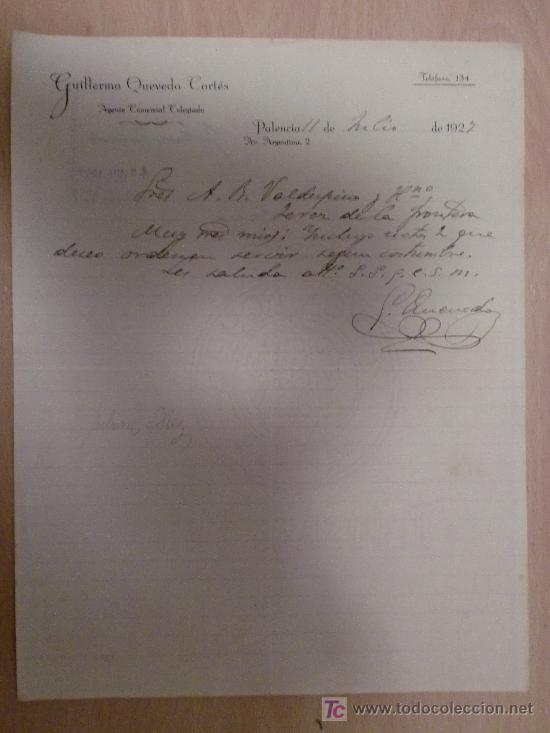 Guillermo Quevedo Cortés
Teléfono 134
Agente Comercial Colegiado
Palencia 11 de Julio de 1927
Av. Argentina, 2
Sres A. R. Valdespino y Hno
Jerez de la Frontera
Muy mios: Incluyo 2 que
deseo ordenen servir segun costumbre.
Les saluda att. S. S. q. e. s. m.
G. Quevedo
Diez
TC www.todocoleccion.net